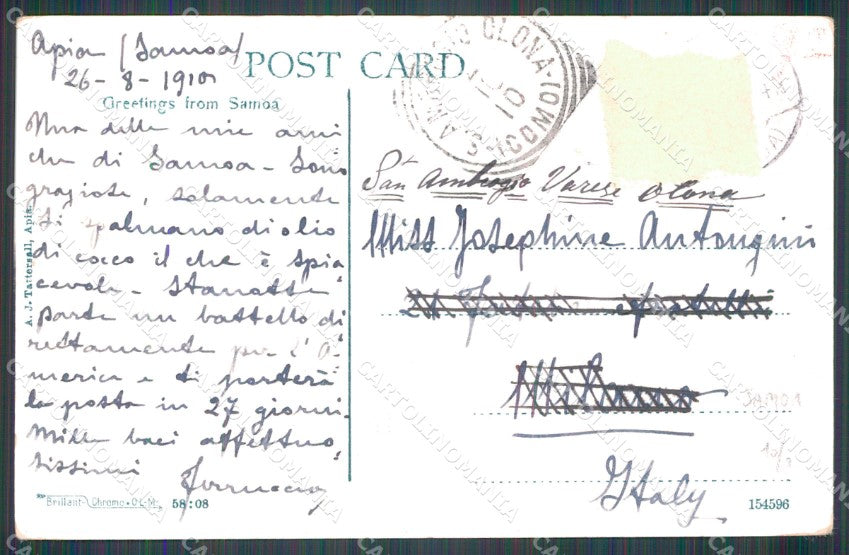 Apia (Samoa)
26-8-1910
POST CARD
Greetings from Samoa
Una delle mie ami
che di Samoa - Sono
graziose, solamente
si spalmano di olio
di cocco il che è spia
cevole - Stanotte
parte un battello di
rettamente per l'A-
merica e ti porterà
la posta in 27 giorni.
Mille baci affettuo
sissimi
A. J. Tattersall, Apia.
Brillant-Chromo-C.L.M.
58:08
OLONA
(COMO)
10
San Ambrogio Varese Olona
Miss Josephine Antongini
Italy
154596
CARTOLINOMANIA